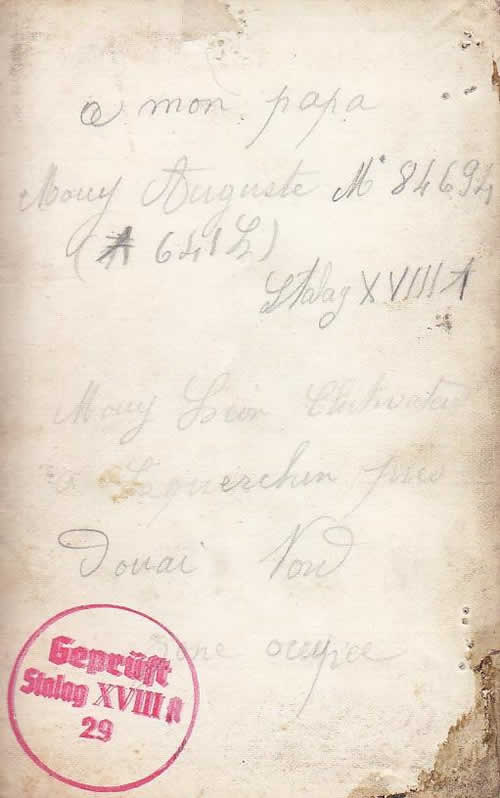 a mon papa
Mouy Auguste M° 84694
(A 641L)
Stalag XVIII A
Mouy Léon Cultivateur
a Esquerchin près
Douai Nord
zone occupée
Geprüft
Stalag XVIII A
29